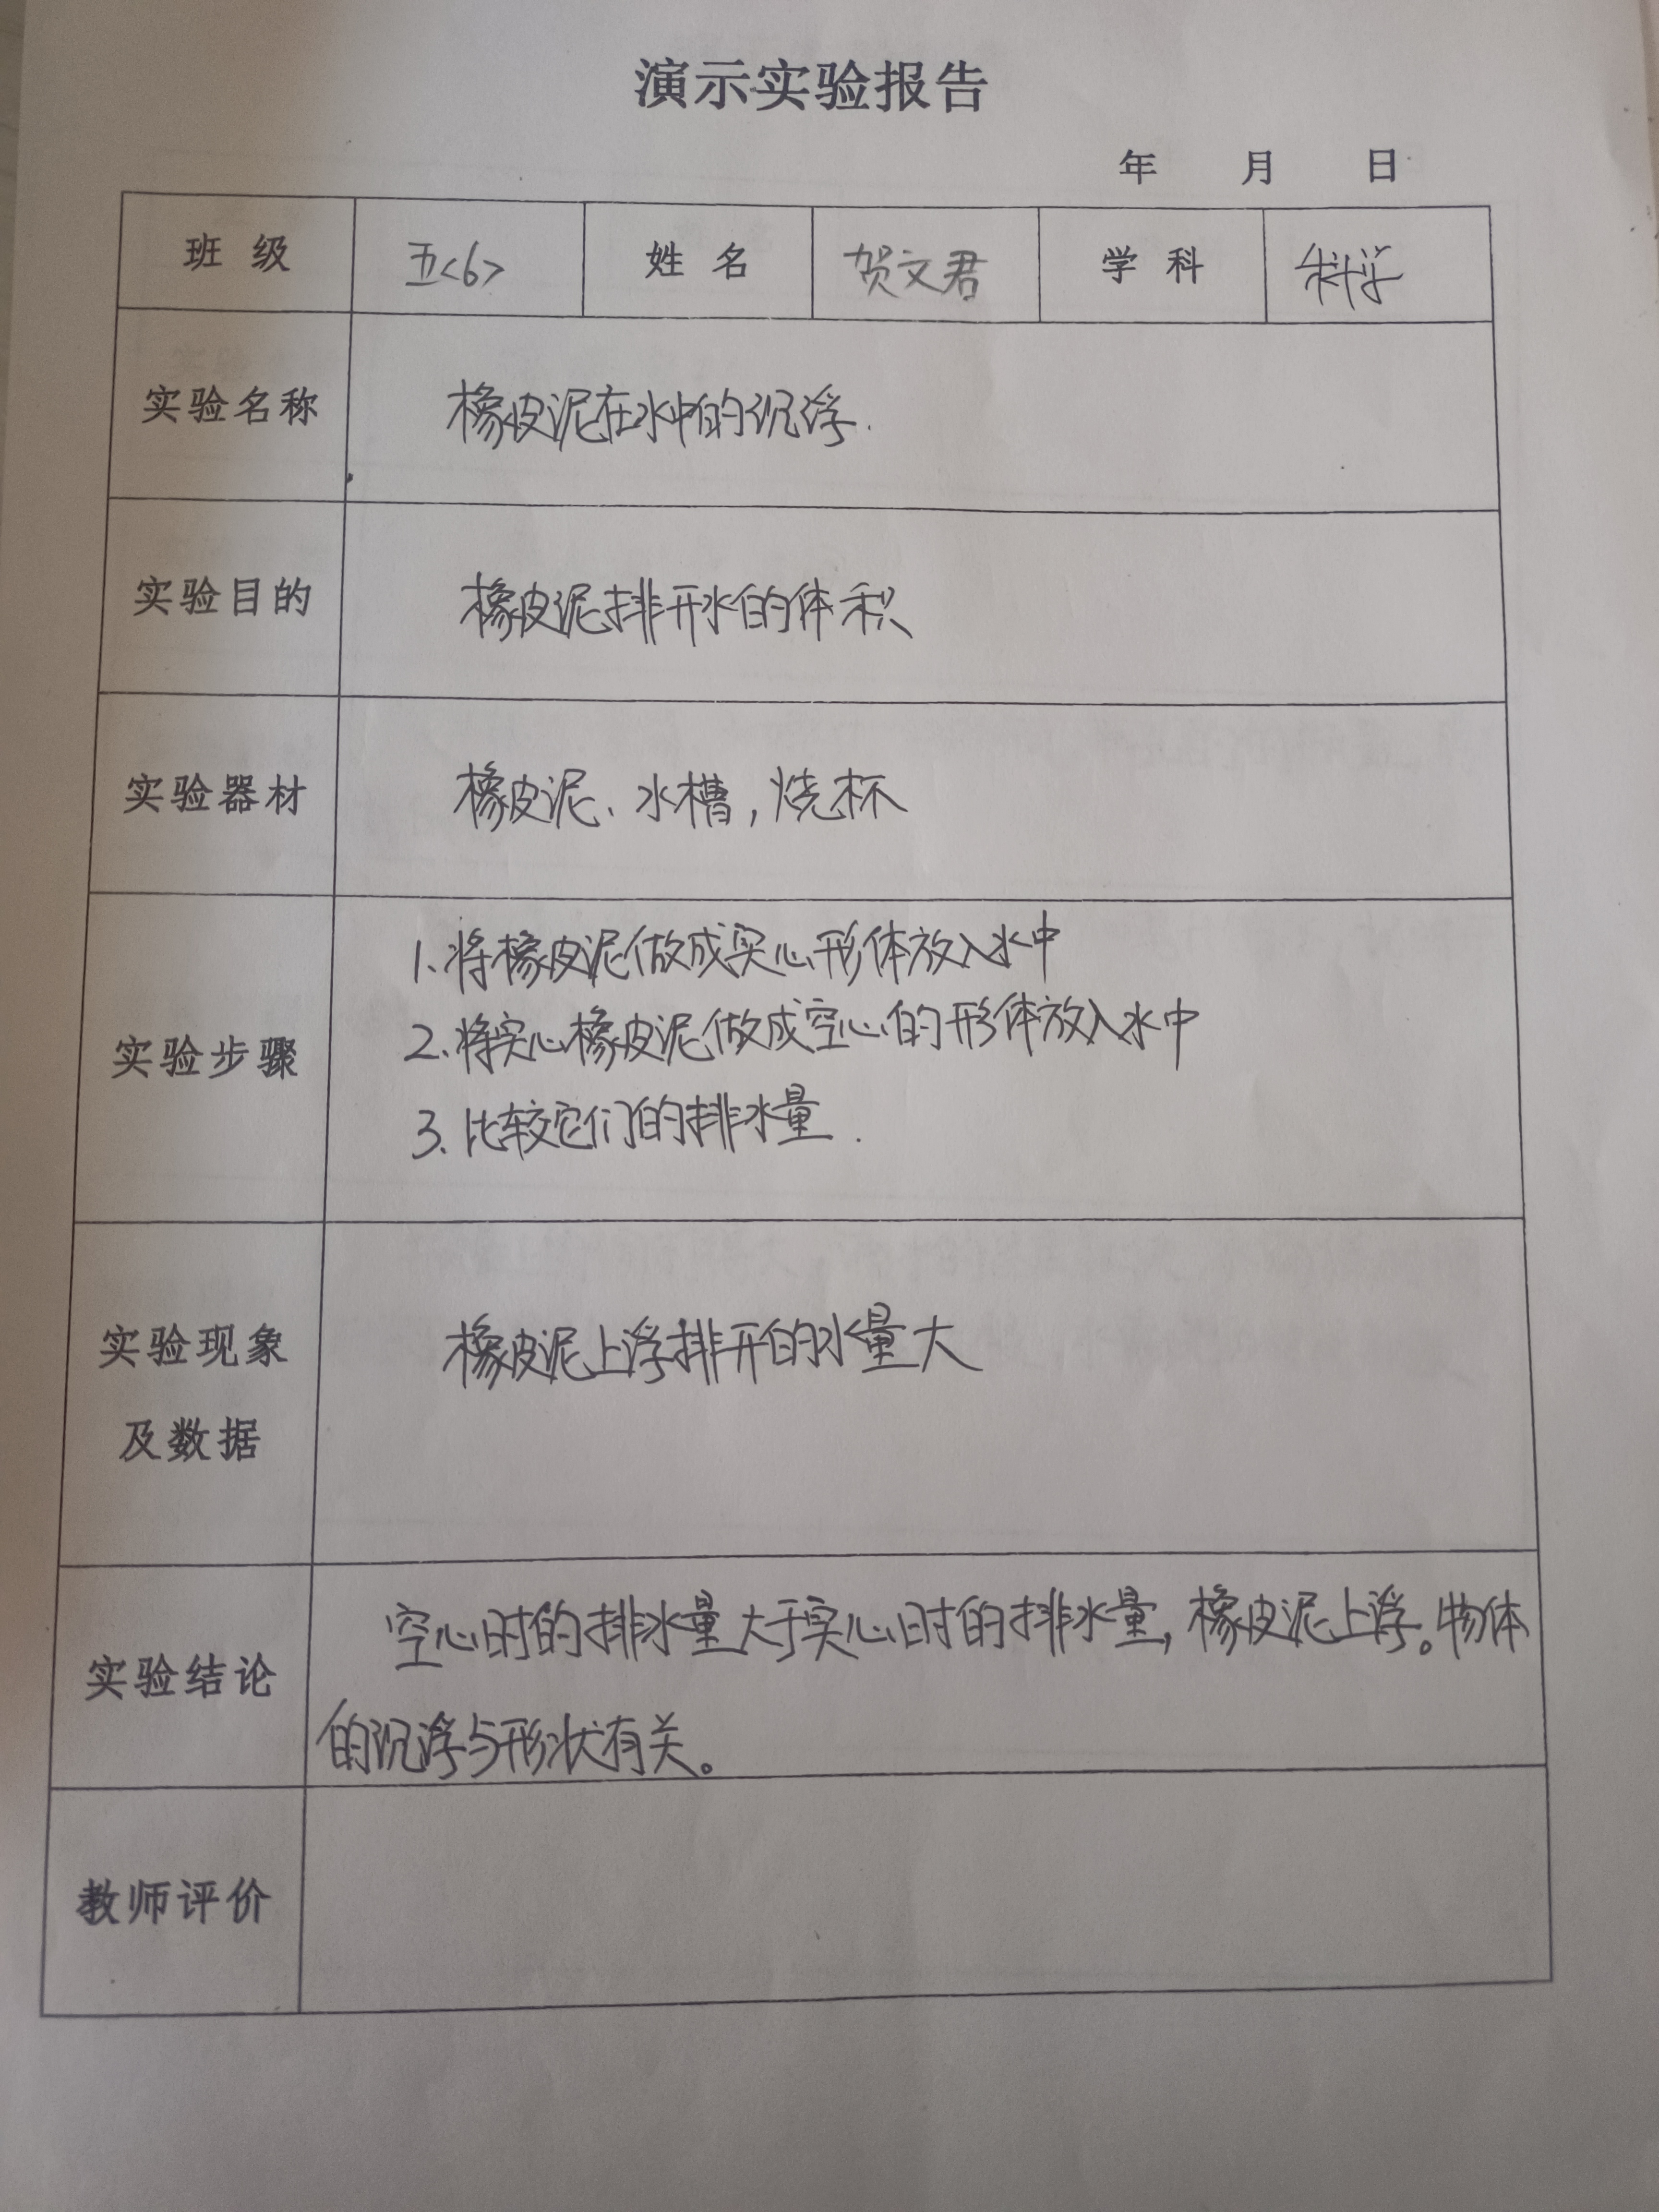 演示实验报告
年 月 日
班级 五<6> 姓名 贺文君 学科 科学
实验名称 橡皮泥在水中的沉浮.
实验目的 橡皮泥排开水的体积
实验器材 橡皮泥、水槽,烧杯
1、将橡皮泥做成实心形体放入水中
2、将实心橡皮泥做成空心的形体放入水中
实验步骤
3、比较它们的排水量.
实验现象 橡皮泥上浮排开的水量大
及数据
空心时的排水量大于实心时的排水量,橡皮泥上浮。物体
实验结论
的沉浮与形状有关。
教师评价